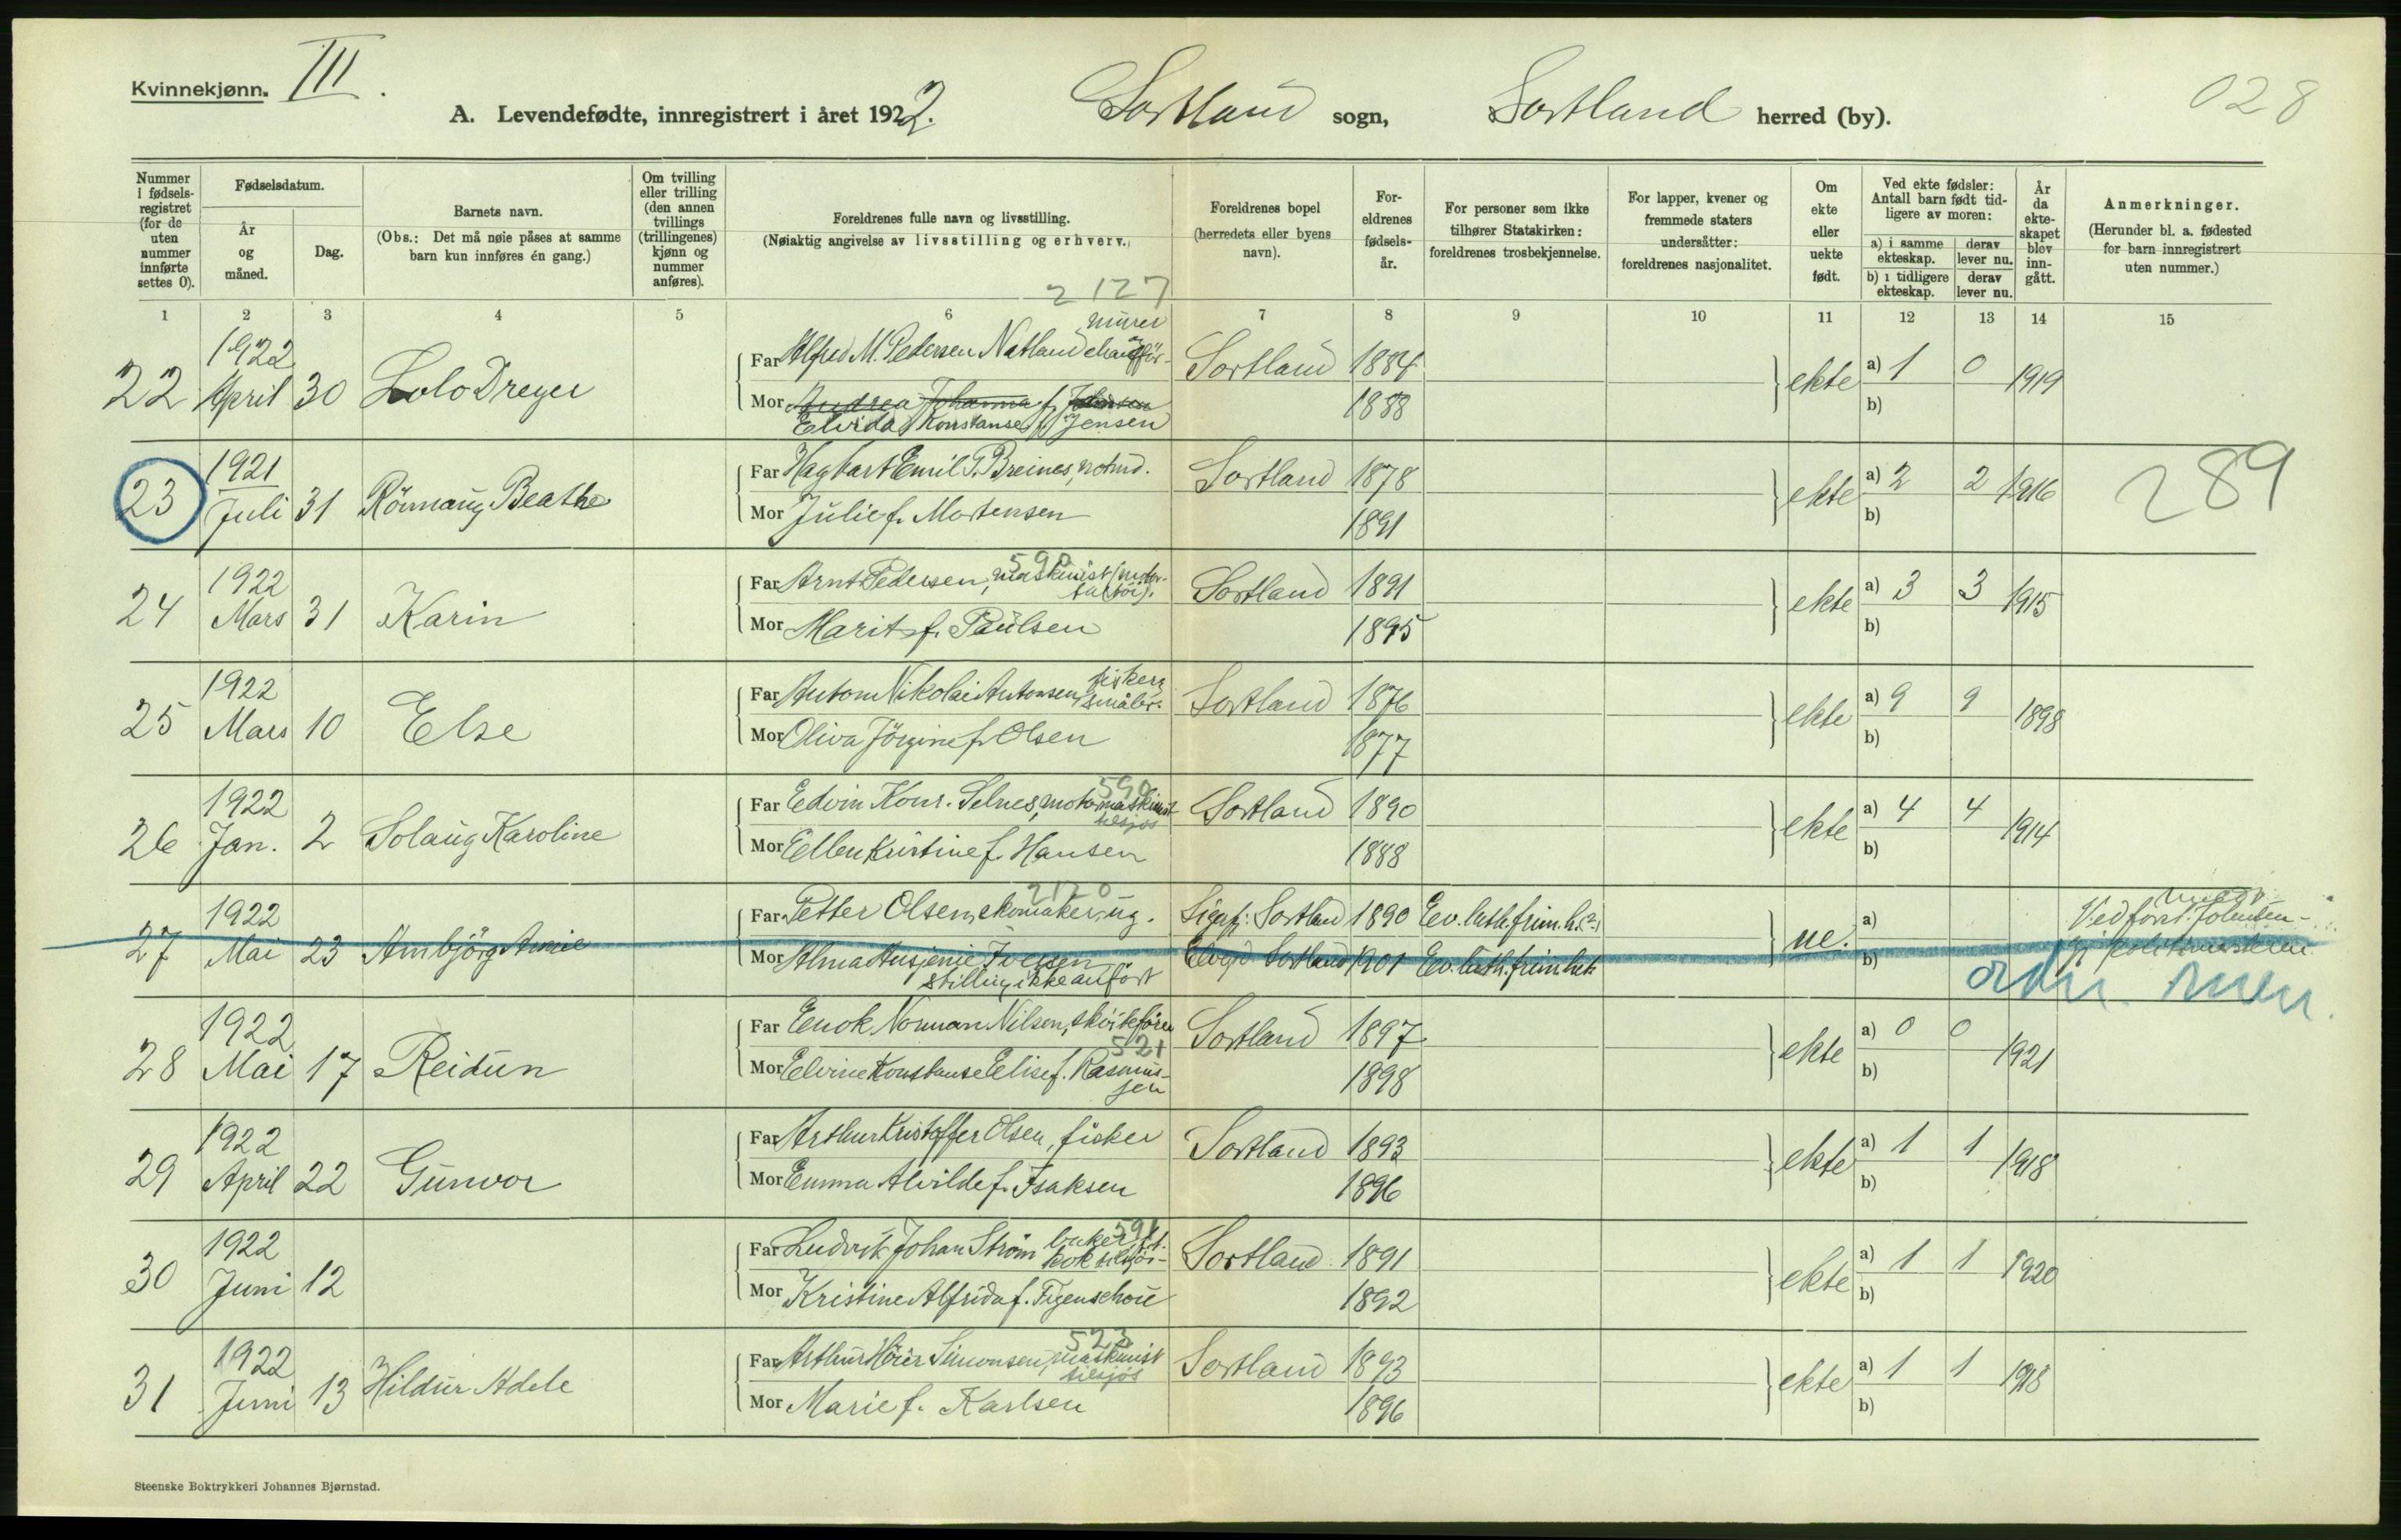 Kvinnekjønn. III.
028
A. Levendefødte, innregistrert i året 1922. Sortland sogn, Sortland herred (by).
Nummer i fødselsregistret (for de uten nummer innførte settes 0).
Fødselsdatum.
År og måned.
Dag.
Barnets navn.
(Obs.: Det må nøie påses at samme barn kun innføres én gang.)
Om tvilling eller trilling (den annen tvillings (trillingenes) kjønn og nummer anføres).
Foreldrenes fulle navn og livsstilling.
(Nøiaktig angivelse av livsstilling og erhverv.)
Foreldrenes bopel (herredets eller byens navn).
Foreldrenes fødselsår.
For personer som ikke tilhører Statskirken: foreldrenes trosbekjennelse.
For lapper, kvener og fremmede staters undersåtter: foreldrenes nasjonalitet.
Om ekte eller uekte født.
Ved ekte fødsler: Antall barn født tidligere av moren:
a) i samme ekteskap. derav lever nu.
b) i tidligere ekteskap. derav lever nu.
År da ekteskapet blev inngått.
Anmerkninger.
(Herunder bl. a. fødested for barn innregistrert uten nummer.)
1 2 3 4 5 6 7 8 9 10 11 12 13 14 15
2127
murer
22 1922 April 30 Lolo Dreyer Far Alfred M. Pedersen Natland chaufför Sortland 1884 ekte a) 1 0 1919
Mor Andrea Johanna f. Johnsen 1888 b)
Elvida Konstanse f. Jensen
23 1921 Juli 31 Rönnaug Beathe Far Hagbart Emil P. Breines, Sortland 1878 ekte a) 2 2 1916 289
Mor Julie f. Mortensen 1891 b)
590
24 1922 Mars 31 Karin Far Arnt Pedersen, maskinist Sortland 1891 ekte a) 3 3 1915
Mor Marit f. Paulsen 1895 b)
25 1922 Mars 10 Else Far Anton Nikolai Antonsen, fisker, småbr. Sortland 1876 ekte a) 9 9 1898
Mor Oliva Jörgine f. Olsen 1877 b)
590
26 1922 Jan. 2 Solaug Karoline Far Edvin Konr. Selnes, motormaskinist tilsjøs Sortland 1890 ekte a) 4 4 1914
Mor Ellen Kristine f. Hansen 1888 b)
2120
27 1922 Mai 23 Far Petter Olsen, skomaker, ug. Sortland 1890 Ev. luth. frim. ue. a)
Mor Alma Iversen Sortland 1901 Ev. luth. b)
stilling ikke anført
28 1922 Mai 17 Reidun Far Enok Norman Nilsen, skøitefører Sortland 1897 ekte a) 0 0 1921
521
Mor Elvine Konstanse Elise f. Rasmussen 1898 b)
29 1922 April 22 Gunvor Far Arthur Kristoffer Olsen, fisker Sortland 1893 ekte a) 1 1 1918
Mor Emma Alvilde f. Isaksen 1896 b)
30 1922 Juni 12 Far Ludvik Johan Strøm kok tilsjøs Sortland 1891 ekte a) 1 1 1920
Mor Kristine Alfrida f. Figenschou 1892 b)
523
31 1922 Juni 13 Hildur Adele Far Arthur Simonsen, maskinist tilsjøs Sortland 1893 ekte a) 1 1 1918
Mor Marie f. Karlsen 1896 b)
Steenske Boktrykkeri Johannes Bjørnstad.